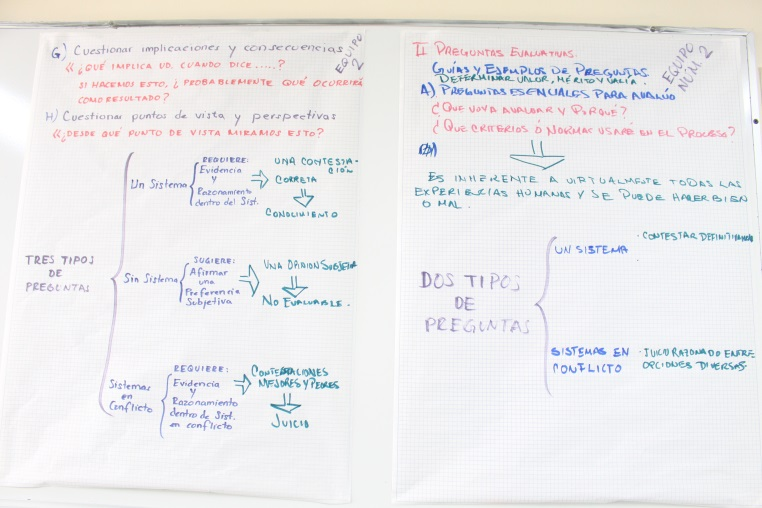 G) Cuestionar implicaciones y consecuencias
"¿QUÉ IMPLICA UD. CUANDO DICE.....?
SI HACEMOS ESTO, ¿PROBABLEMENTE QUÉ OCURRIRÁ
COMO RESULTADO?
H) Cuestionar puntos de vista y perspectivas
"¿DESDE QUÉ PUNTO DE VISTA MIRAMOS ESTO?
EQUIPO
2
TRES TIPOS
DE
PREGUNTAS
Un Sistema
REQUIERE:
Evidencia
y
Razonamiento
dentro del Sist.
UNA CONTESTA-
CIÓN
CORRETA
CONOCIMIENTO
Sin Sistema
SUGIERE:
Afirmar
una
Preferencia
Subjetiva
UNA OPINION SUBJETIVA
NO EVALUABLE.
Sistemas
en
Conflicto
REQUIERE:
Evidencia
y
Razonamiento
dentro de Sist.
en conflicto
CONTESTACIONES
MEJORES Y PEORES
JUICIO
II PREGUNTAS EVALUATIVAS.
GUÍAS Y EJEMPLOS DE PREGUNTAS.
DETERMINAR VALOR, MÉRITO Y VALÍA.
A) PREGUNTAS ESENCIALES PARA AVALÚO
¿QUE VOY A AVALUAR Y PORQUÉ?
¿QUE CRITERIOS O NORMAS USARÉ EN EL PROCESO?
EQUIPO
NÚM. 2
ES INHERENTE A VIRTUALMENTE TODAS LAS
EXPERIENCIAS HUMANAS Y SE PUEDE HACER BIEN
O MAL.
DOS TIPOS
DE
PREGUNTAS
UN SISTEMA
· CONTESTAR DEFINITIVAMENTE
SISTEMAS EN
CONFLICTO
· JUICIO RAZONADO ENTRE
OPCIONES DIVERSAS.